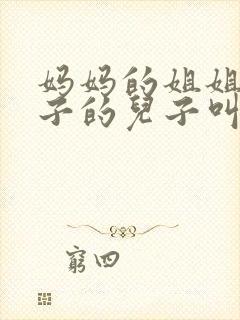 妈妈的姐姐
子的兒子叫
窮四